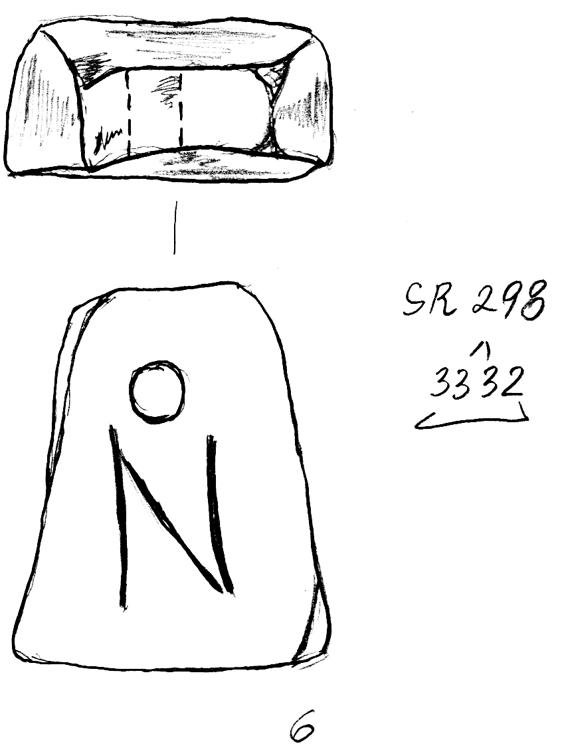 SR 298
3332
N
6